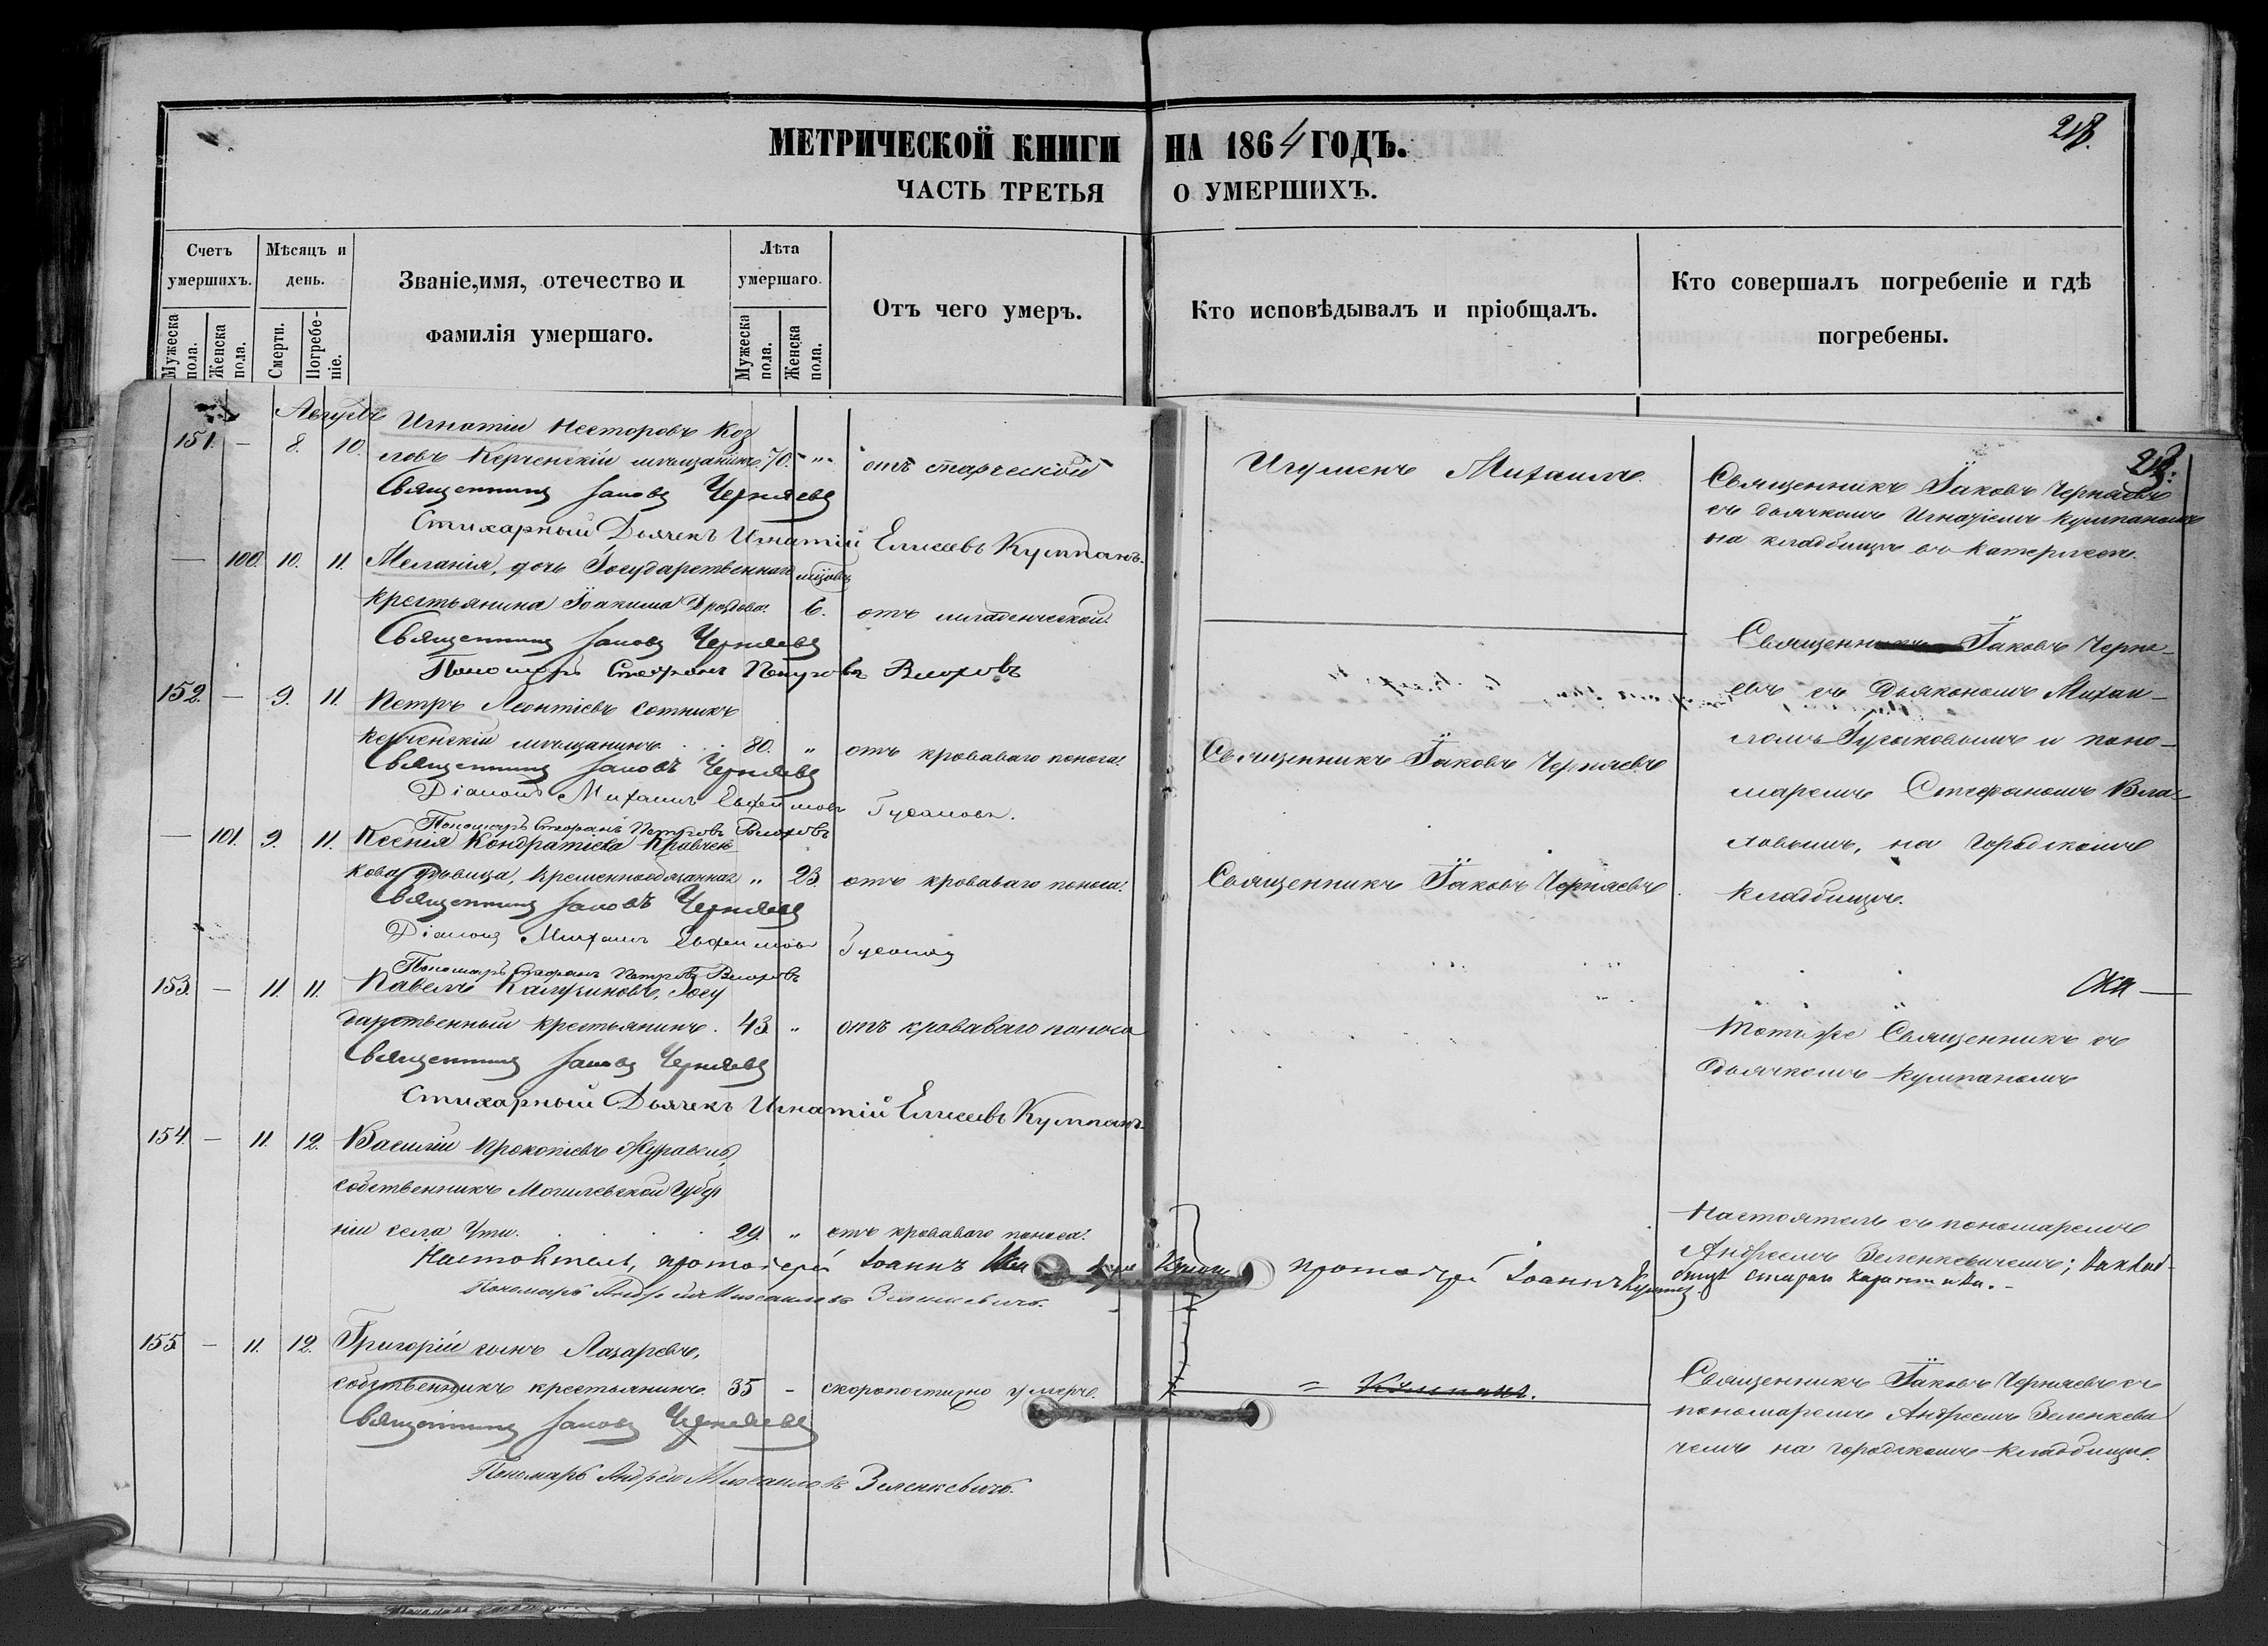 МЕТРИЧЕСКОЙ КНИГИ НА 1864 ГОДЪ.
ЧАСТЬ ТРЕТЬЯ О УМЕРШИХЪ.
Счетъ умершихъ.
Мужеска пола.
Женска пола.
Мѣсяцъ и день.
Смерти.
Погребеніе.
Званіе, имя, отечество и
фамилія умершаго.
Лѣта умершаго.
Мужеска пола.
Женска пола.
Отъ чего умеръ.
Кто исповѣдывалъ и пріобщалъ.
Кто совершалъ погребеніе и гдѣ
погребены.
Августъ
151. — 8. 10. Игнатій Несторовъ Коз
ловъ Керченскій мѣщанинъ. 70. „ отъ старческой
Игуменъ Михаилъ.
Священникъ Іаковъ Черняевъ
съ дьячкомъ Игнатіемъ Кумпаномъ
на кладбищѣ въ Катерлезѣ.
Священникъ Іаковъ Черняевъ
Стихарный Дьячекъ Игнатій Елисеевъ Кумпанъ.
— 100. 10. 11. Меланія, дочь Государственнаго
крестьянина Іоакима Дроздова. 6. отъ младенческой.
Священникъ Іаковъ Черняевъ
Пономарь Стефанъ Петровъ
Священникъ Іаковъ Черня-
евъ съ Дьякономъ Михаи-
ломъ Гусаковымъ и поно-
маремъ Стефаномъ
на Городскомъ
кладбищѣ.
152. — 9. 11. Петръ Леонтіевъ Сотникъ
керченскій мѣщанинъ. 80. „ отъ кроваваго поноса.
Священникъ Іаковъ Черняевъ
Священникъ Іаковъ Черняевъ
Діаконъ Михаилъ Евфимовъ Гусаковъ.
Пономарь Стефанъ Петровъ
— 101. 9. 11. Ксенія Кондратіева Кравчен
кова дѣвица, временнообязанная „ 23. отъ кроваваго поноса.
Священникъ Іаковъ Черняевъ
Священникъ Іаковъ Черняевъ
Діаконъ Михаилъ Евфимовъ Гусаковъ
Пономарь Стефанъ Петровъ
153. — 11. 11. Павелъ Госу
дарственный крестьянинъ. 43 „ отъ кроваваго поноса
Тотъ же Священникъ съ
дьячкомъ Кумпаномъ
Священникъ Іаковъ Черняевъ
Стихарный Дьячекъ Игнатій Елисеевъ Кумпанъ.
154. — 11. 12. Василій Прокопіевъ Журавель,
собственникъ Могилевской Губер
ніи села Ути. 29. „ отъ кроваваго поноса.
Настоятель, протоіерей Іоаннъ
Пономарь Андрей Михайловъ Зеленкевичъ.
протоіерей Іоаннъ
Настоятель съ пономаремъ
Андреемъ Зеленкевичемъ; на клад-
бищѣ стараго карантина.
155 — 11. 12. Григорій сынъ Лазаревъ,
собственникъ крестьянинъ. 35 - скоропостижно умеръ.
Священникъ Іаковъ Черняевъ
Пономарь Андрей Михайловъ Зеленкевичъ.
Священникъ Іаковъ Черняевъ съ
пономаремъ Андреемъ Зеленкеви
чемъ на городскомъ кладбищѣ.